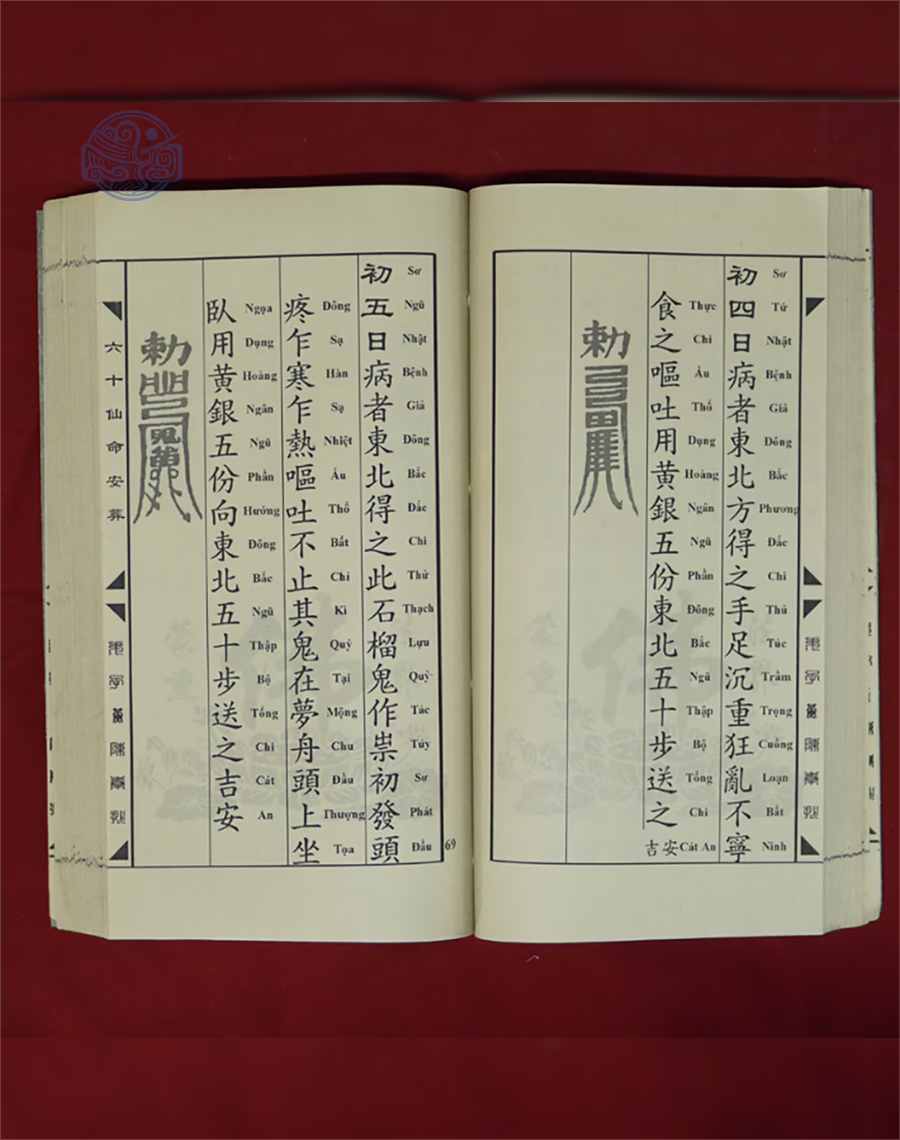 Sơ Tứ Nhật Bệnh Giả Đông Bắc Phương Đắc Chi Thủ Túc Trầm Trọng Cuồng Loạn Bất Ninh
初四日病者東北方得之手足沉重狂亂不寧
Thực Chi Ẩu Thổ Dụng Hoàng Ngân Ngũ Phần Đông Bắc Ngũ Thập Bộ Tống Chi Cát An
食之嘔吐用黃銀五份東北五十步送之吉安
勅
69
Sơ Ngũ Nhật Bệnh Giả Đông Bắc Đắc Chi Thử Thạch Lựu Quỷ Tác Túy Sơ Phát Đầu
初五日病者東北得之此石榴鬼作祟初發頭
Đông Sạ Hàn Sạ Nhiệt Ẩu Thổ Bất Chỉ Kì Quỷ Tại Mộng Chu Đầu Thượng Tọa
疼乍寒乍熱嘔吐不止其鬼在夢舟頭上坐
Ngọa Dụng Hoàng Ngân Ngũ Phần Hướng Đông Bắc Ngũ Thập Bộ Tống Chi Cát An
臥用黃銀五份向東北五十步送之吉安
勅
六十仙命安葬